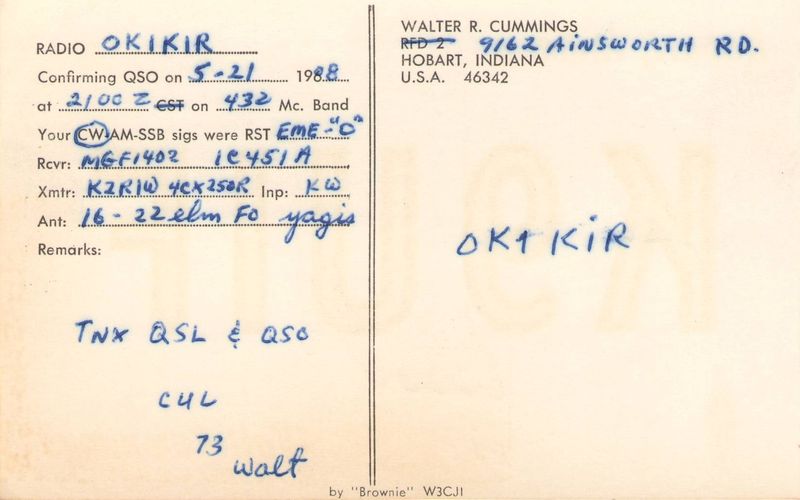 RADIO OK1KIR
Confirming QSO on 5-21 1988
at 2100 Z CST on 432 Mc. Band
Your CW-AM-SSB sigs were RST EME-"O"
Rcvr: MGF1402 IC451A
Xmtr: K2RIW 4CX250R Inp: KW
Ant: 16 - 22 elm FO yagis
Remarks:
TNX QSL & QSO
CUL
73
Walt
WALTER R. CUMMINGS
RFD 2 9162 AINSWORTH RD.
HOBART, INDIANA
U.S.A. 46342
OK1KIR
by "Brownie" W3CJI